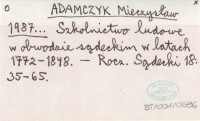 o
x
ADAMCZYK Mieczysław
1987... Szkolnictwo ludowe
w obwodzie sądeckim w latach
1772-1848. — Rocz. Sądecki 18:
35-65.